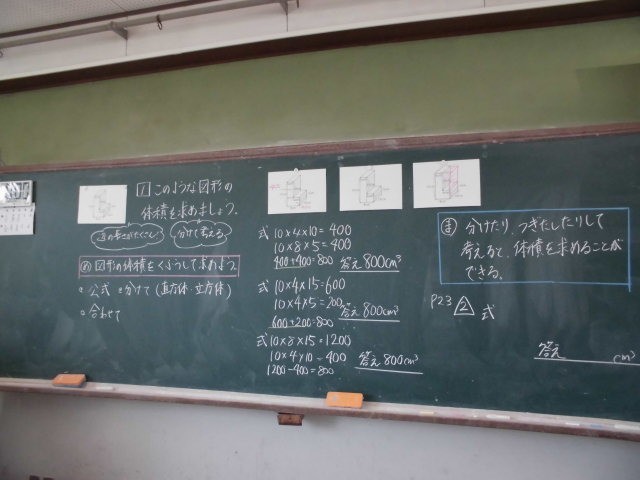 1 このような図形の
体積を求めましょう。
辺の長さがたくさん!
分けて考える
め 図形の体積をくふうして求めよう。
公式 分けて(直方体・立方体)
合わせて
式 10×4×10=400
10×8×5=400
400+400=800 答え 800cm³
式 10×4×15=600
10×4×5=200
600+200=800 答え 800cm³
式 10×8×15=1200
10×4×10=400
1200-400=800 答え 800cm³
ま 分けたり、つぎたしたりして
考えると、体積を求めることが
できる。
P23 2 式
答え cm³